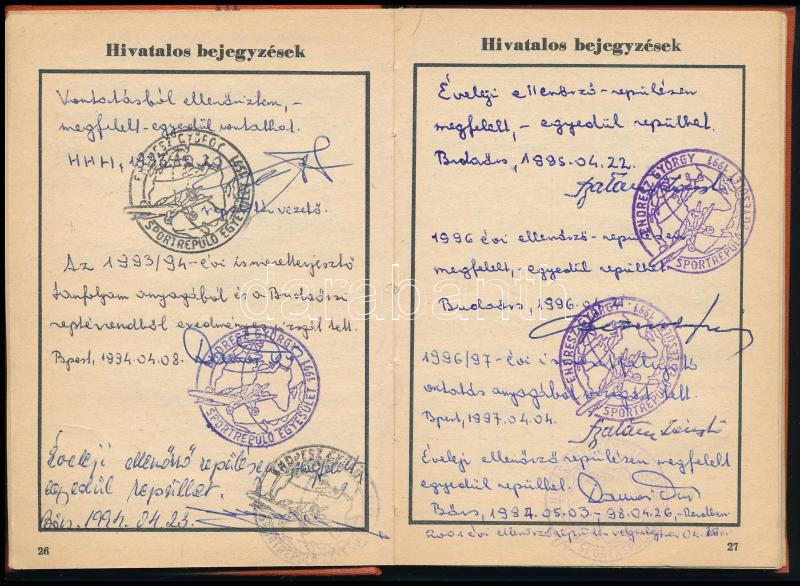 Hivatalos bejegyzések
Vontatásból ellenőriztem,-
megfelelt-egyedül vontathat.
HHH, 1993.10.
vezető.
ENDRESZ GYÖRGY 1991
SPORTREPÜLŐ EGYESÜLET
Az 1993/94-évi ismeretterjesztő
tanfolyam anyagából és a Budaörsi
reptérrendből eredményes vizsgát tett.
Bpest, 1994.04.08.
ENDRESZ GYÖRGY 1991
SPORTREPÜLŐ EGYESÜLET
Éveleji ellenőrző repülésen megfelelt
egyedül repülhet.
Börs, 1994.04.23.
26
Hivatalos bejegyzések
Éveleji ellenőrző-repülésen
megfelelt,- egyedül repülhet.
Budaörs, 1995.04.22.
ENDRESZ GYÖRGY 1991
SPORTREPÜLŐ EGYESÜLET
1996 évi ellenőrző-repülésen
megfelelt,-egyedül repülhet.
Budaörs, 1996.04.
ENDRESZ GYÖRGY 1991
SPORTREPÜLŐ EGYESÜLET
1996/97-évi
oktatás anyagából vizsgát tett.
Bpest, 1997.04.04.
Éveleji ellenőrző repülésen megfelelt
egyedül repülhet.
Börs, 1997.05.03-98.04.26,-Rendben
2001 évi ellenőrző
27
darabanth